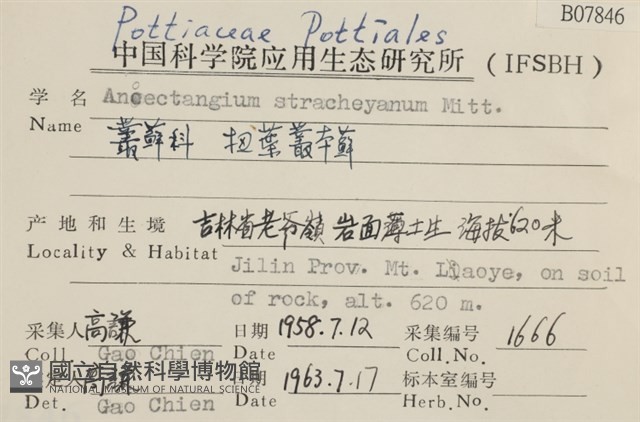 B07846
Pottiaceae Pottiales
中国科学院应用生态研究所 (IFSBH)
学 名 Anoectangium stracheyanum Mitt.
Name
叢蘚科 扭葉叢本蘚
产地和生境 吉林省老爷嶺 岩面薄土生 海拔620米
Locality & Habitat Jilin Prov. Mt. Laoye, on soil
of rock, alt. 620 m.
采集人 高謙 日期 1958.7.12 采集编号 1666
Coll. Gao Chien Date Coll.No.
高謙 日期 1963.7.17 标本室编号
國立自然科學博物館
NATIONAL MUSEUM OF NATURAL SCIENCE
Det. Gao Chien Date Herb.No.